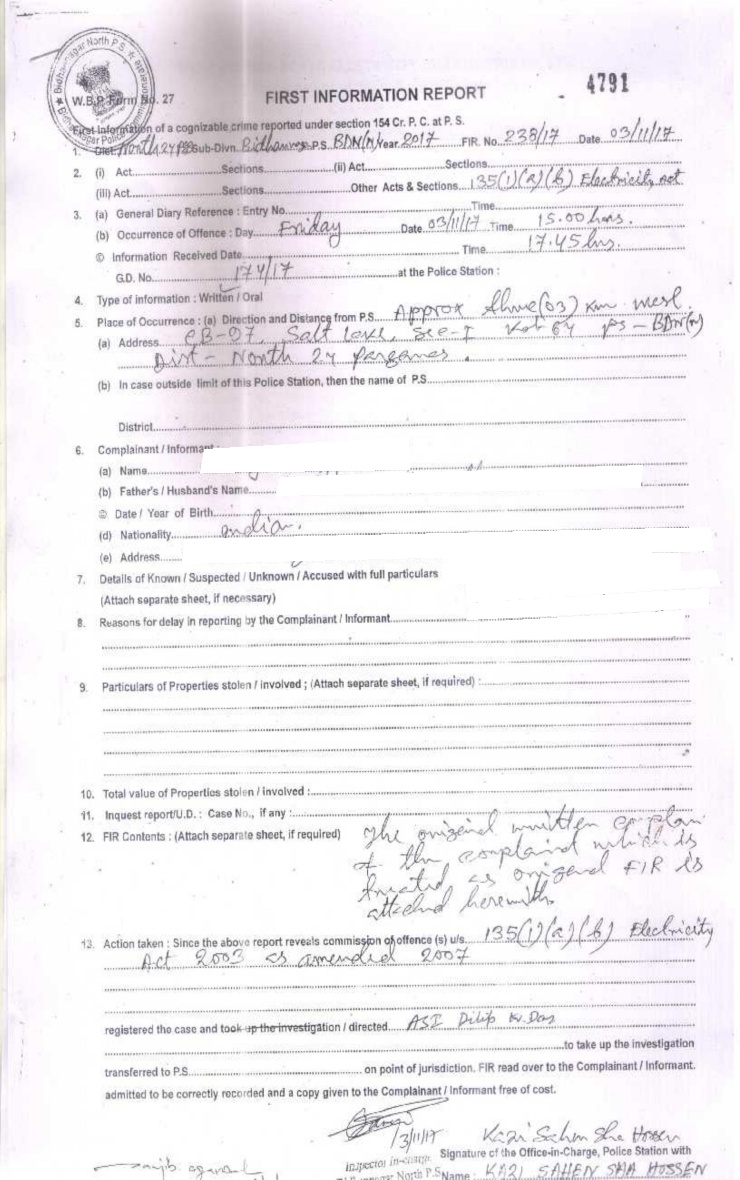 Bidhannagar North P.S.
4791
W.B.P. Form No. 27
FIRST INFORMATION REPORT
First Information of a cognizable crime reported under section 154 Cr. P. C. at P. S.
1. Dist. North 24 Sub-Divn. Bidhannagar P.S. BDN(N) Year 2017 FIR. No. 238/17 Date 03/11/17
2. (i) Act Sections (ii) Act Sections
(iii) Act Sections Other Acts & Sections 135(1)(a)(b) Electricity Act
3. (a) General Diary Reference : Entry No. Time
(b) Occurrence of Offence : Day Friday Date 03/11/17 Time 15.00 hrs.
© Information Received Date Time 17.45 hrs.
G.D. No. 174/17 at the Police Station :
4. Type of information : Written / Oral
5. Place of Occurrence : (a) Direction and Distance from P.S. Approx three(03) Km west.
(a) Address -97, Salt Lake, Sec-I Kol 64 PS - BDN(N)
Dist - North 24 Parganas.
(b) In case outside limit of this Police Station, then the name of P.S.
District
6. Complainant / Informant :
(a) Name
(b) Father's / Husband's Name
© Date / Year of Birth
(d) Nationality Indian.
(e) Address
7. Details of Known / Suspected / Unknown / Accused with full particulars
(Attach separate sheet, if necessary)
8. Reasons for delay in reporting by the Complainant / Informant
9. Particulars of Properties stolen / involved ; (Attach separate sheet, if required) :
10. Total value of Properties stolen / involved :
11. Inquest report/U.D. : Case No., if any :
12. FIR Contents : (Attach separate sheet, if required) The original written complain
of the complaind which is
treated as original FIR is
attached herewith
13. Action taken : Since the above report reveals commission of offence (s) u/s. 135(1)(a)(b) Electricity
Act 2003 as amended 2007
registered the case and took up the investigation / directed ASI Dilip Kr. Das
to take up the investigation
transferred to P.S. on point of jurisdiction. FIR read over to the Complainant / Informant.
admitted to be correctly recorded and a copy given to the Complainant / Informant free of cost.
3/11/17 Kazi Sahen Sha Hossen
Inspector in-charge Signature of the Office-in-Charge, Police Station with
North P.S. Name : KAZI SAHEN SHA HOSSEN